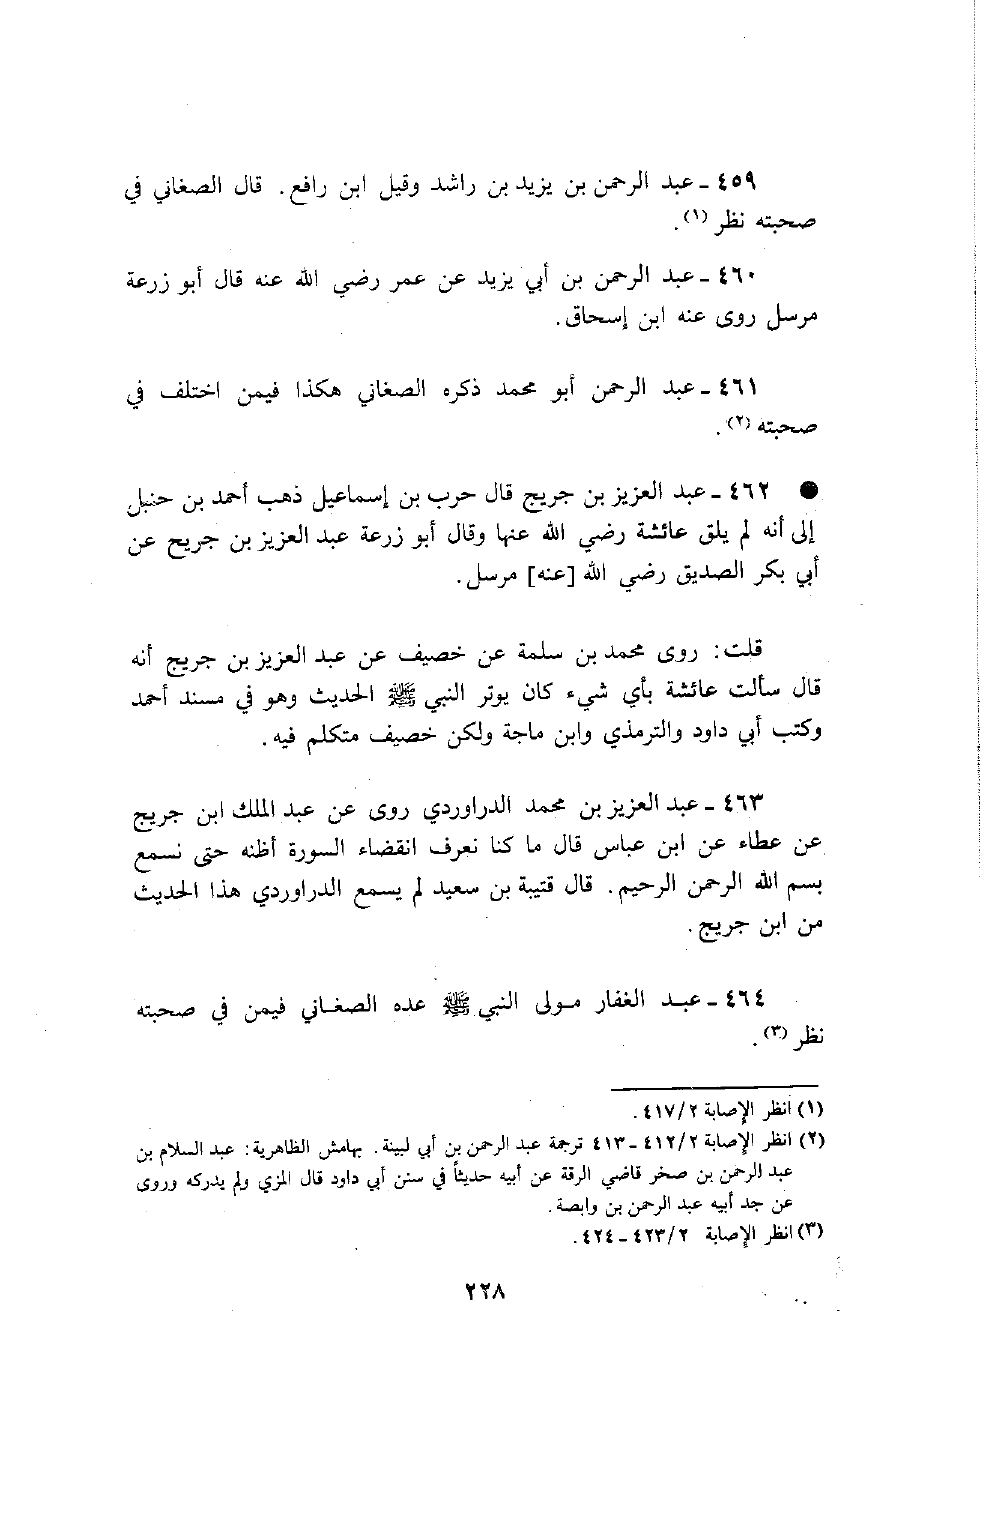 ٤٥٩ ـ عبد الرحمن بن يزيد بن راشد وقيل ابن رافع. قال الصغاني في
صحبته نظر (١).
٤٦٠ ـ عبد الرحمن بن أبي يزيد عن عمر رضي الله عنه قال أبو زرعة
مرسل روى عنه ابن إسحاق.
٤٦١ ـ عبد الرحمن أبو محمد ذكره الصغاني هكذا فيمن اختلف في
صحبته (٢).
● ٤٦٢ ـ عبد العزيز بن جريج قال حرب بن إسماعيل ذهب أحمد بن حنبل
إلى أنه لم يلق عائشة رضي الله عنها وقال أبو زرعة عبد العزيز بن جريح عن
أبي بكر الصديق رضي الله [عنه] مرسل.
قلت: روى محمد بن سلمة عن خصيف عن عبد العزيز بن جريج أنه
قال سألت عائشة بأي شيء كان يوتر النبي ﷺ الحديث وهو في مسند أحمد
وكتب أبي داود والترمذي وابن ماجة ولكن خصيف متكلم فيه.
٤٦٣ ـ عبد العزيز بن محمد الدراوردي روى عن عبد الملك ابن جريج
عن عطاء عن ابن عباس قال ما كنا نعرف انقضاء السورة أظنه حتى نسمع
بسم الله الرحمن الرحيم. قال قتيبة بن سعيد لم يسمع الدراوردي هذا الحديث
من ابن جريج.
٤٦٤ ـ عبد الغفار مولى النبي ﷺ عده الصغاني فيمن في صحبته
نظر (٣).
(١) انظر الإصابة ٤١٧/٢.
(٢) انظر الإصابة ٤١٢/٢ ـ ٤١٣ ترجمة عبد الرحمن بن أبي لبينة. بهامش الظاهرية: عبد السلام بن
عبد الرحمن بن صخر قاضي الرقة عن أبيه حديثاً في سنن أبي داود قال المزي ولم يدركه وروى
عن جد أبيه عبد الرحمن بن وابصة.
(٣) انظر الإصابة ٤٢٣/٢ ـ ٤٢٤.
٢٢٨